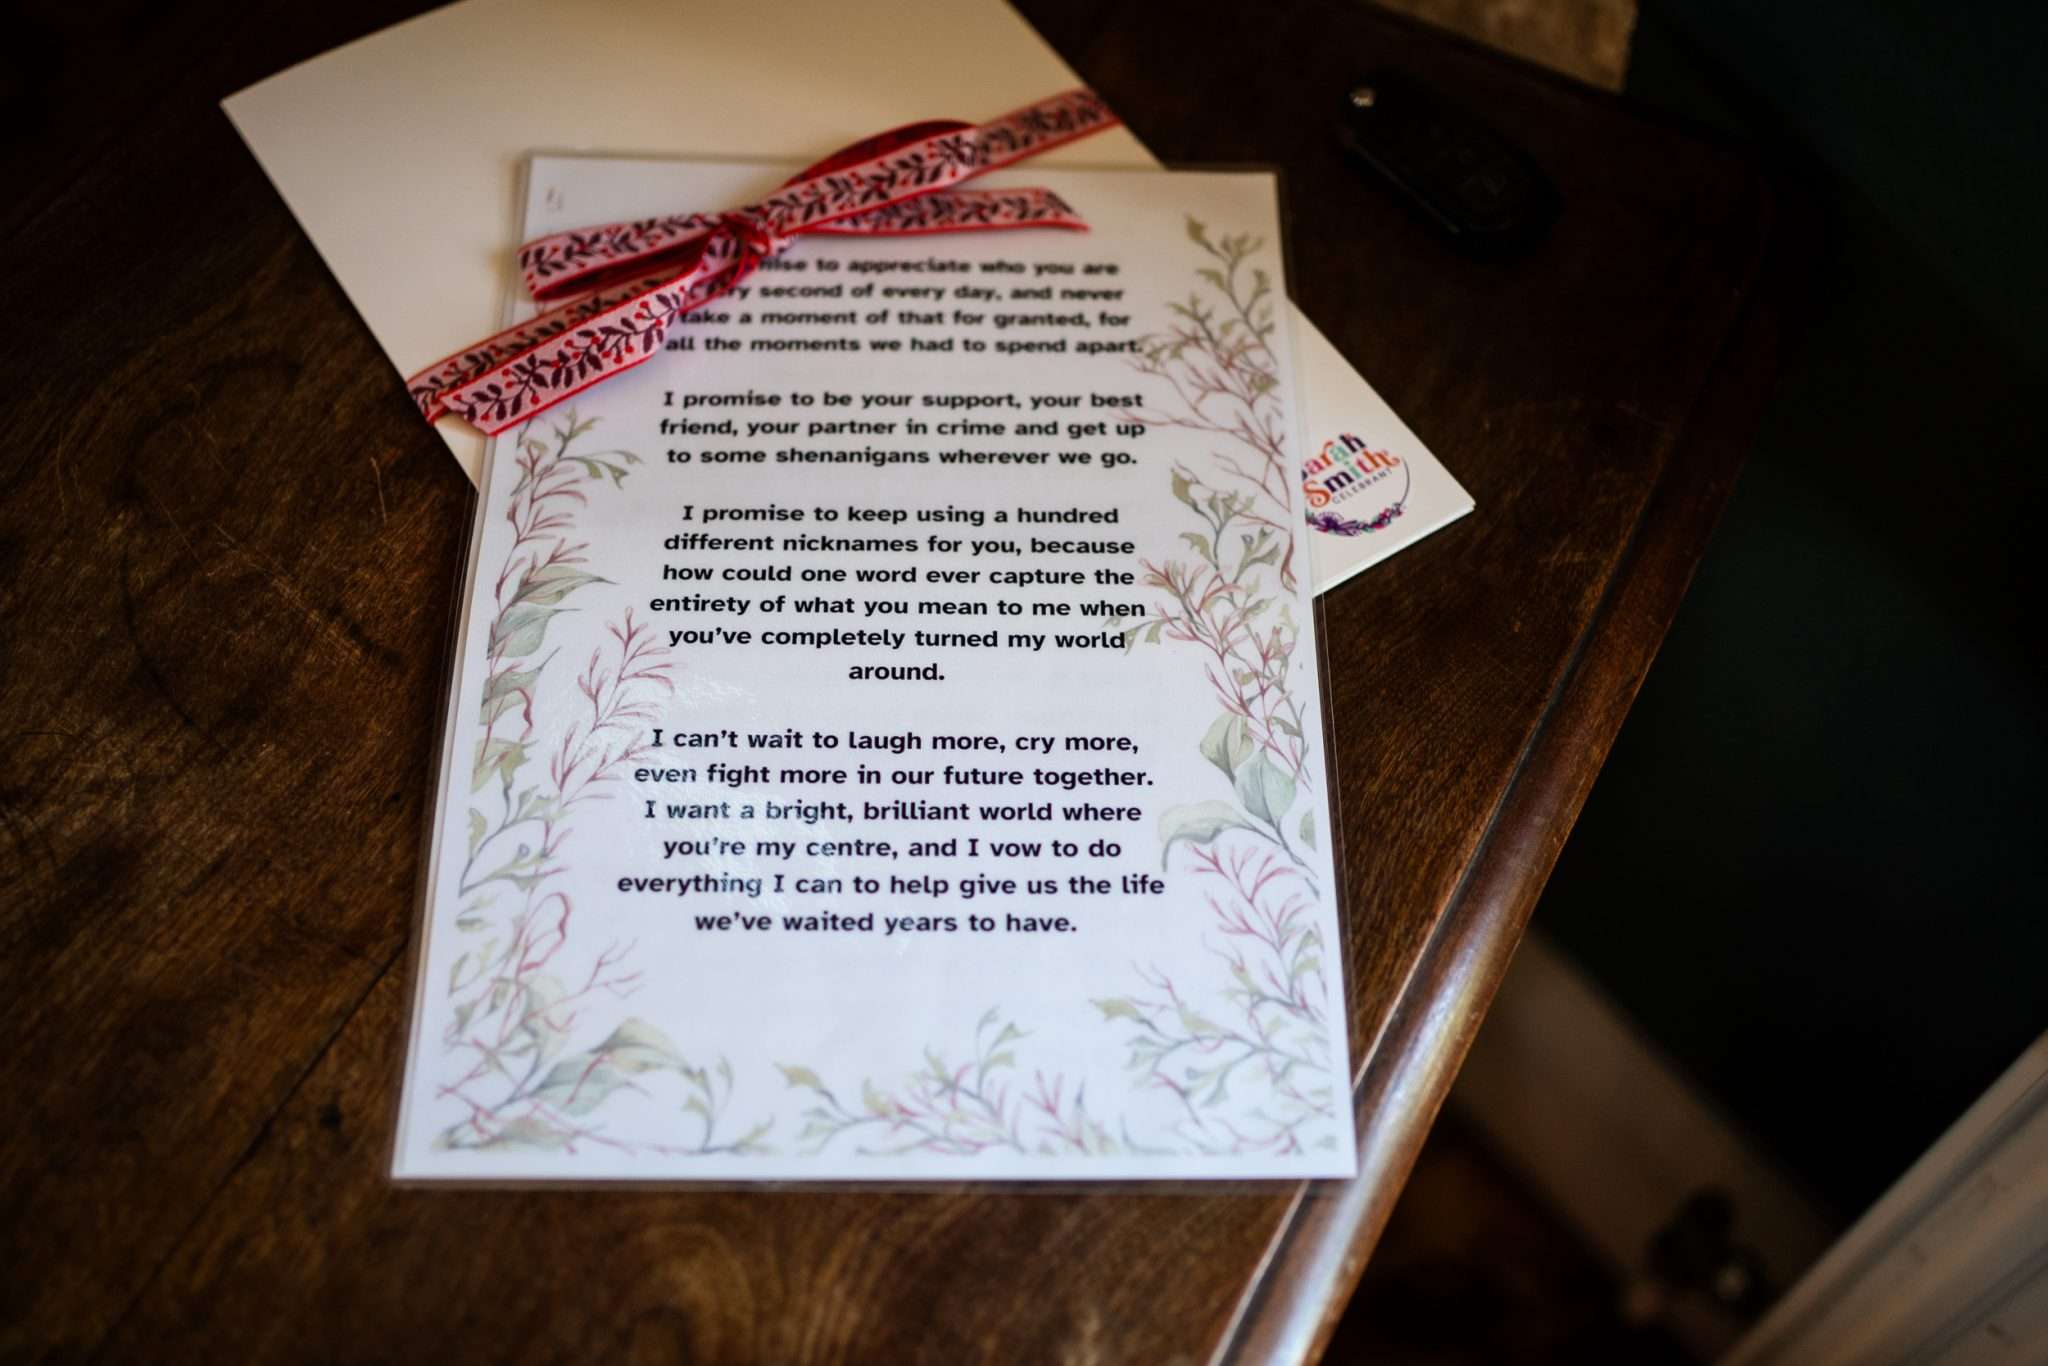 to appreciate who you are
second of every day, and never
take a moment of that for granted, for
all the moments we had to spend apart.
I promise to be your support, your best
friend, your partner in crime and get up
to some shenanigans wherever we go.
I promise to keep using a hundred
different nicknames for you, because
how could one word ever capture the
entirety of what you mean to me when
you've completely turned my world
around.
I can't wait to laugh more, cry more,
even fight more in our future together.
I want a bright, brilliant world where
you're my centre, and I vow to do
everything I can to help give us the life
we've waited years to have.
Sarah
Smith
CELEBRANT